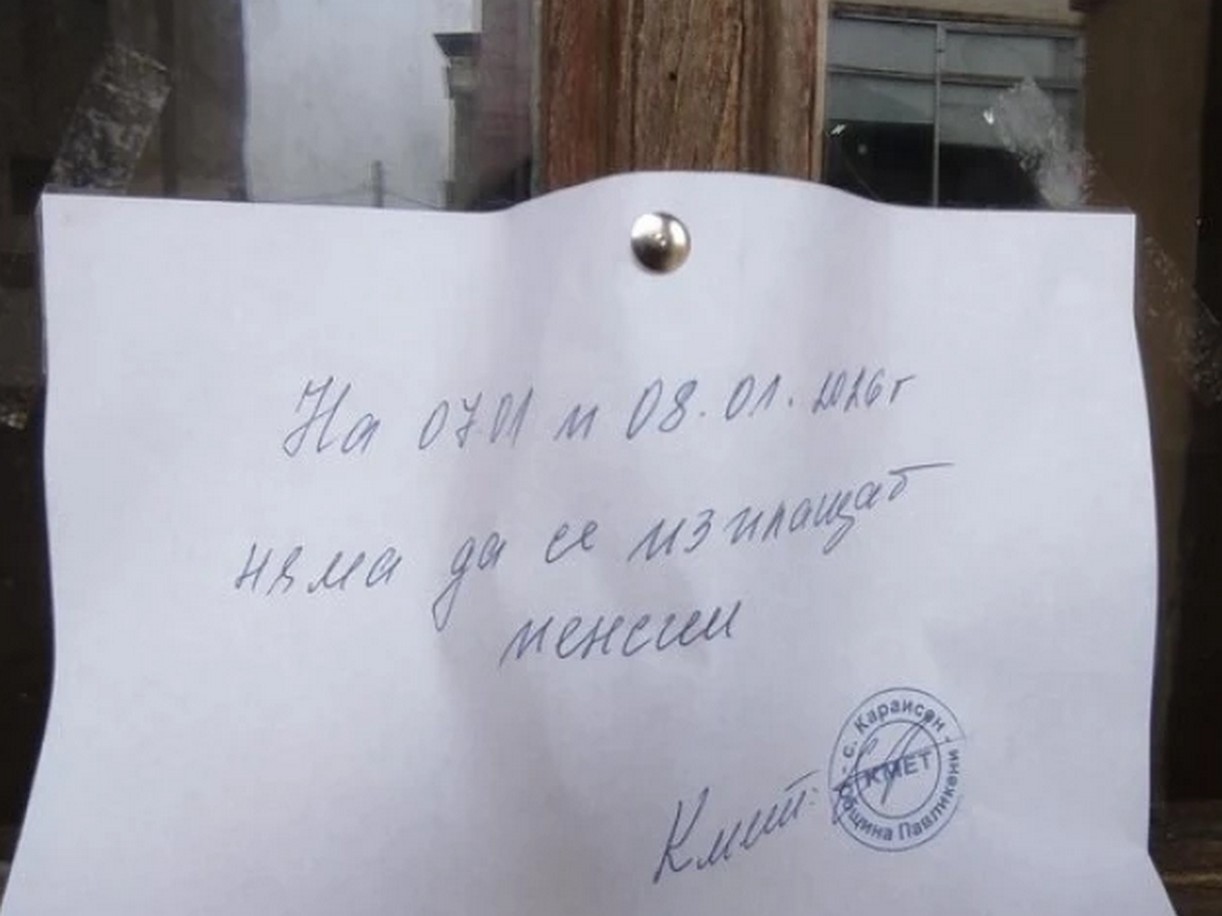 На 07.01 и 08.01.2026г
няма да се изплащат
пенсии
Кмет:
с. Караисен
КМЕТ
Община Павликени